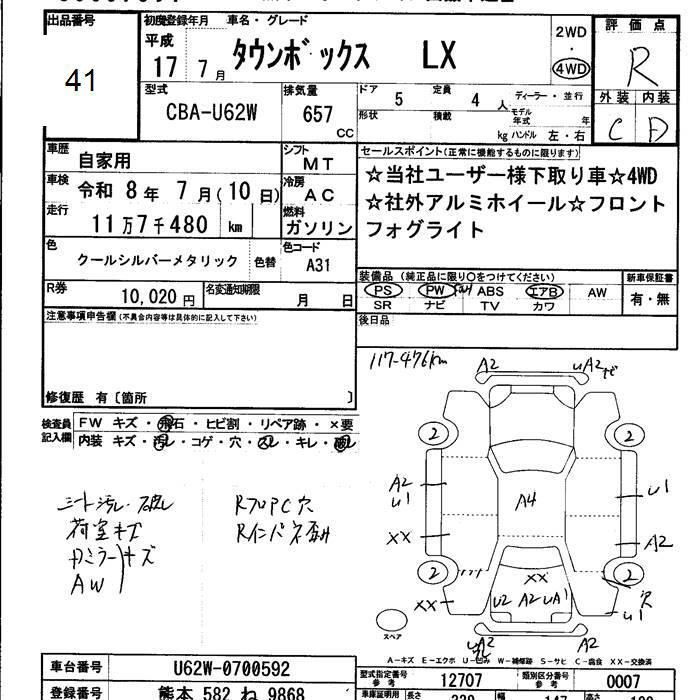 出品番号 初度登録年月 車名・グレード 評価点
41
平成 17 7月 タウンボックス LX
2WD・4WD
R
型式 CBA-U62W 排気量 657 CC
ドア 5 定員 4人 ディーラー・並行
形状 積載 kg モデル年式 年 ハンドル 左・右
外装 内装
C D
車歴 自家用 シフト MT
車検 令和 8年 7月(10日) 冷房 AC
走行 11万7千480 km 燃料 ガソリン
色 クールシルバーメタリック 色替 色コード A31
R券 10,020円 名変通知期限 月 日
セールスポイント(正常に機能するものに限ります)
☆当社ユーザー様下取り車☆4WD
☆社外アルミホイール☆フロント
フォグライト
装備品(純正品に限り○をつけてください) 新車保証書
PS PW ABS エアB AW 有・無
SR ナビ TV カワ
後日品
注意事項申告欄(不具合内容等は具体的に記入して下さい)
修復歴 有〔箇所 〕
検査員記入欄
FW キズ・飛石・ヒビ割・リペア跡・×要
内装 キズ・汚レ・コゲ・穴・スレ・キレ・破レ
シート汚レ・破レ
荷室キズ
AW
R フロアC 穴
R インパネ
117-476km
A2
2 2
A2
U1
A4
U1
XX
A2
2 2
XX
XX
U2 A2 UA1
U1
A2
スペア
A-キズ E-エクボ U-凹み W-補修跡 S-サビ C-腐食 XX-交換済
車台番号 U62W-0700592
型式指定番号 参考 12707 類別区分番号 参考 0007
登録番号 熊本 582 ね 9868